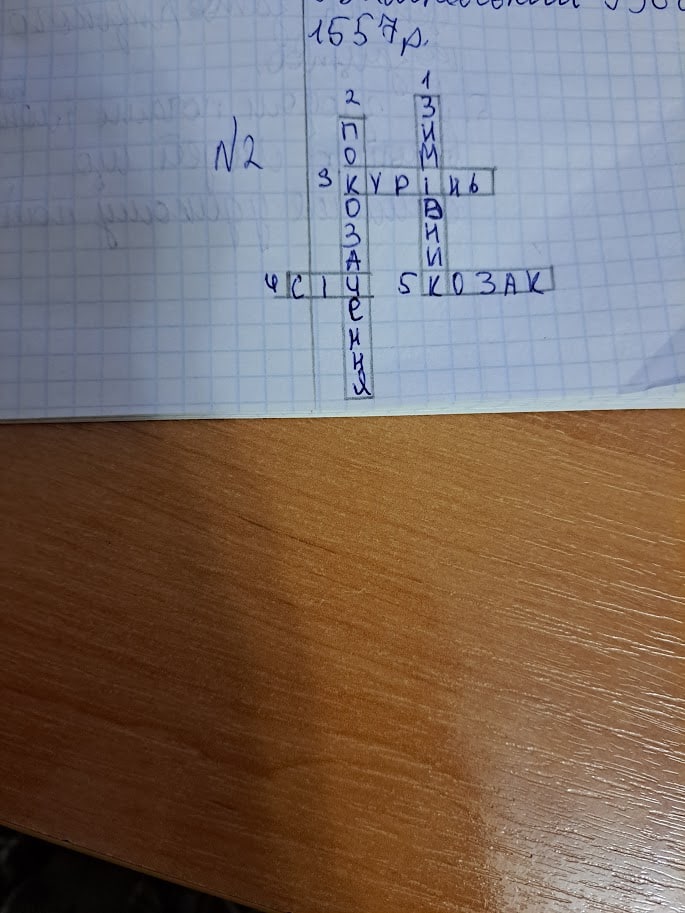 1557р.
N2
1 ЗИМІВНИК
2 ПОКОЗАЧЕННЯ
3 КУРІНЬ
4 СІЧ
5 КОЗАК